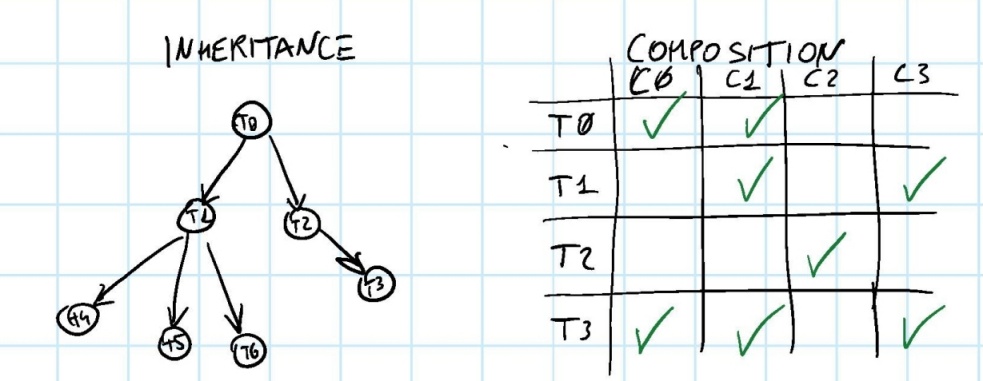 INHERITANCE
T0
T1
T2
T3
T4
T5
T6
COMPOSITION
C0 C1 C2 C3
T0 ✓ ✓
T1 ✓ ✓
T2 ✓
T3 ✓ ✓ ✓